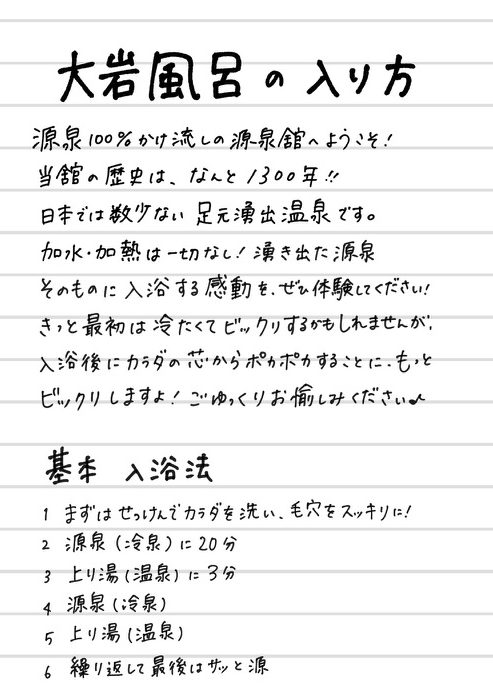 大岩風呂の入り方
源泉100%かけ流しの源泉舘へようこそ!
当舘の歴史は、なんと1300年!!
日本では数少ない 足元湧出温泉です。
加水・加熱は一切なし!湧き出た源泉
そのものに入浴する感動を、ぜひ体験してください!
きっと最初は冷たくてビックリするかもしれませんが、
入浴後にカラダの芯からポカポカすることに、もっと
ビックリしますよ!ごゆっくりお愉しみください♪
基本 入浴法
1 まずはせっけんでカラダを洗い、毛穴をスッキリに!
2 源泉(冷泉)に20分
3 上り湯(温泉)に3分
4 源泉(冷泉)
5 上り湯(温泉)
6 繰り返して最後はサッと源